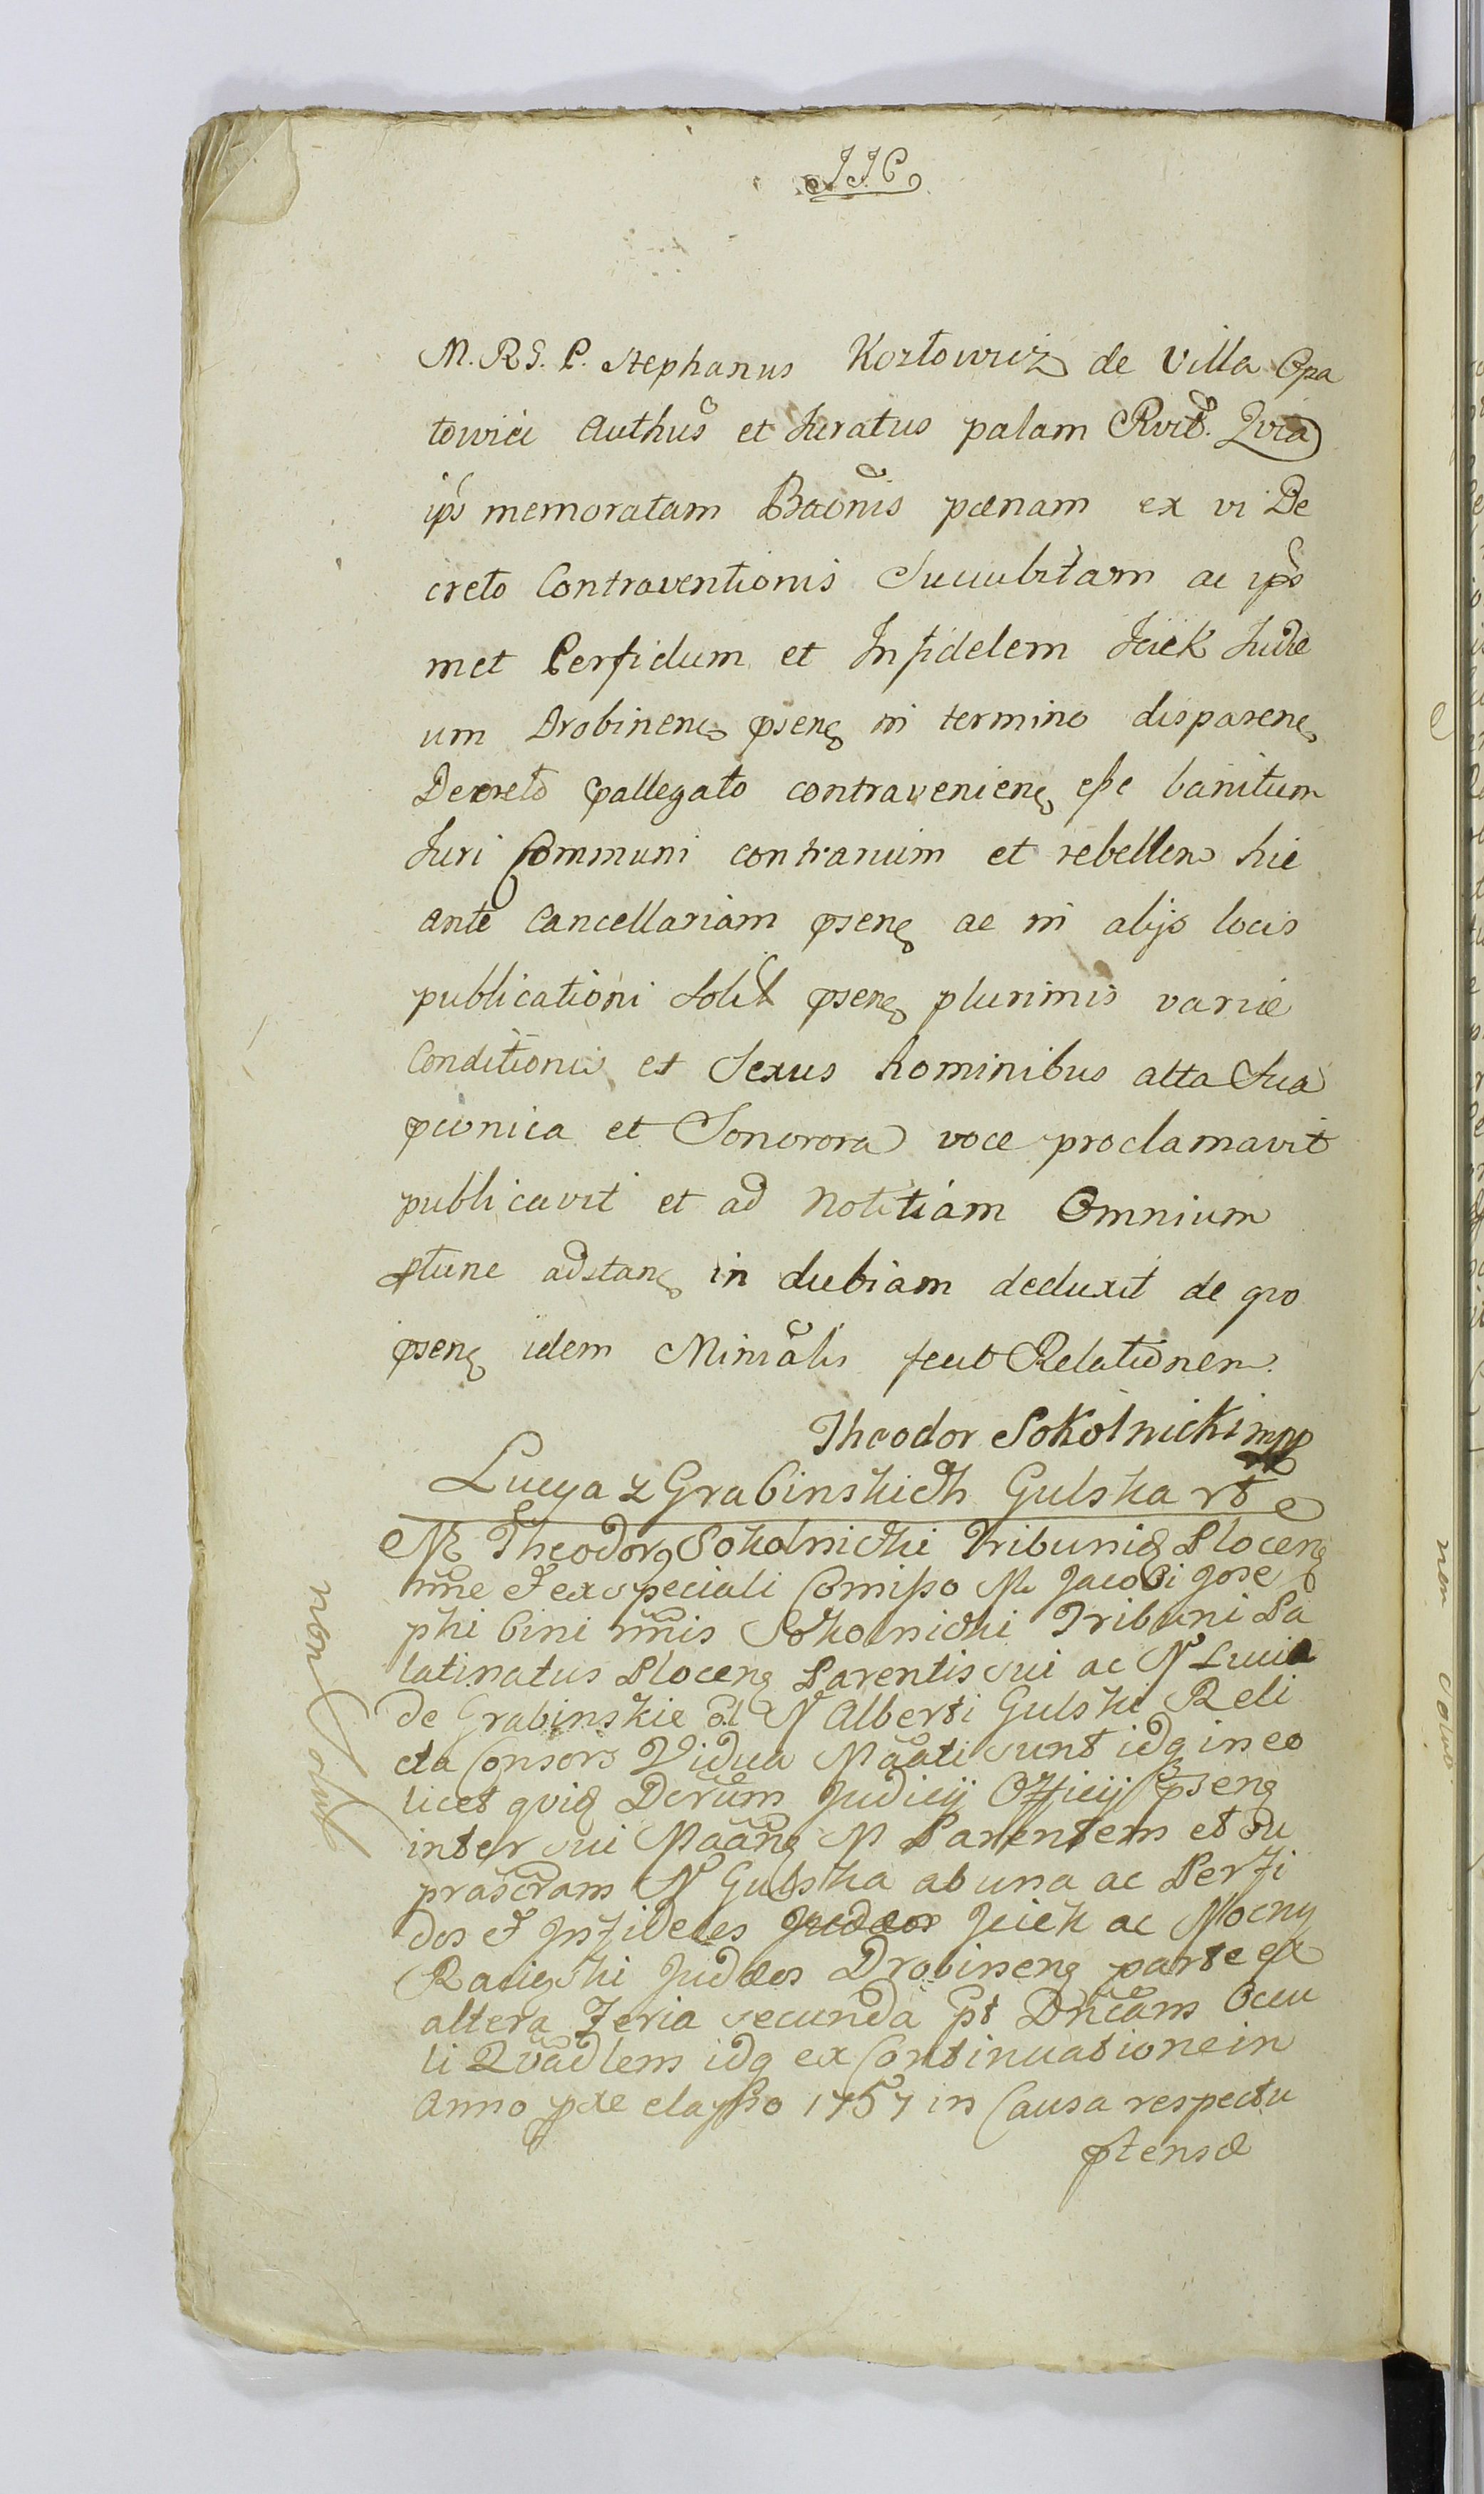 IIC
M. RS. P. Stephanus Kozłowicz de Villa Opa
towicz Authus et Juratus palam Rvit. Qvia
ips memoratam Baonis pænam ex vi De
creto Contraventionis Succubitam ac ips
met Perfidum et Infidelem Iciek Judæ
um Drobinens psens in termino disparens
Decreto pallegato contraveniens eße banitum
Juri Communi contrarium et rebellem hic
ante Cancellariam psens ac in alijs locis
publicationi Solit psens plurimis variæ
Conditionis et Sexus hominibus alta Sua
pconica et Sonorora voce proclamavit
publicavit et ad Notitiam Omnium
ptunc adstans in dubiam deduxit de qvo
psens idem Minrālis fecit Relationem.
Theodor Sokolnicki mpp
Lucya z Grabinskich Gulska rt
M Theodorg Sokolnicki Tribunig Plocens
nne et ex speciali Comißo M Jacobi Jose
phi bini nnis Sokolnicki Tribuni Pa
latinatus Plocens Parentis sui ac N Lucia
de Grabinskie ol N Alberti Gulski Reli
cta Consors Vidua Māāti sunt idq in eo
licet qvid Dcrum Judicij Officij psens
inter sui Māāns M Parentem et su
prascram N Gulska ab una ac Perfi
dos et Infideles Judæos Icieh ac Mocny
Judæos Drobinens parte ex
altera Feria secunda pt Dncam Ocu
li Qvadlem idq ex Continuatione in
Anno pde elapßo 1757 in Causa respectu
ptensæ
non Solut
non Solut